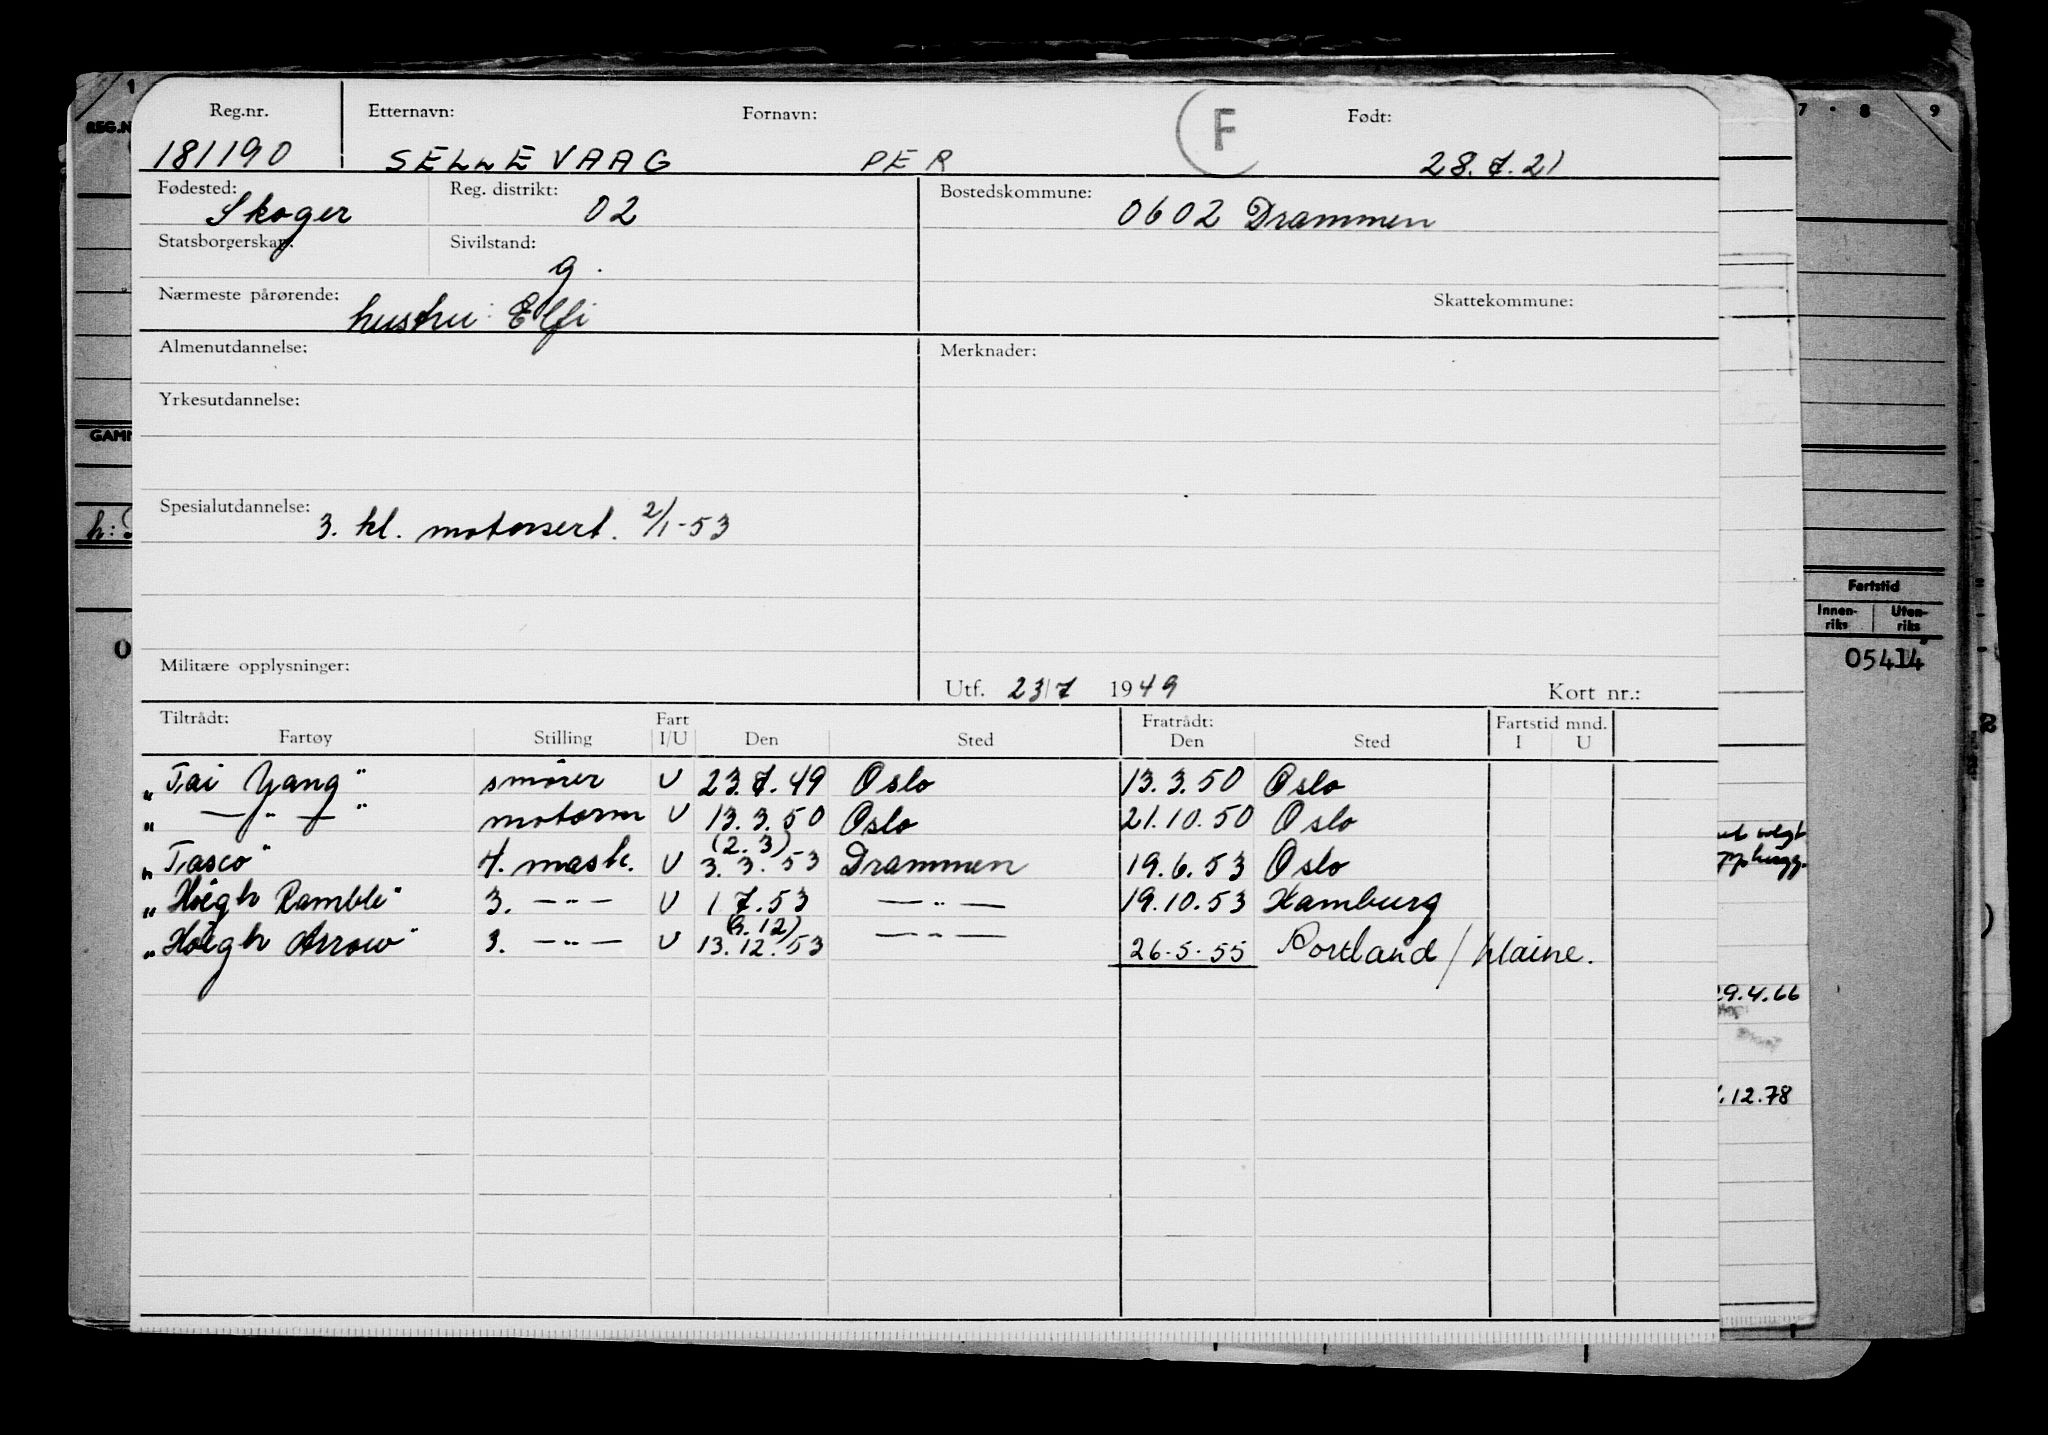 Reg.nr. Etternavn: Fornavn: F Født:
181190 SELLEVAAG PER 28.7.21
Fødested: Reg. distrikt: Bostedskommune:
Skoger 02 0602 Drammen
Statsborgerskap: Sivilstand:
g.
Nærmeste pårørende: Skattekommune:
hustru: Elfi
Almenutdannelse: Merknader:
Yrkesutdannelse:
Spesialutdannelse:
3. kl. motorsert. 2/1-53
Militære opplysninger:
Utf. 23/7 1949 Kort nr.:
Tiltrådt: Fart Fratrådt: Fartstid mnd.
Fartøy Stilling I/U Den Sted Den Sted I U
"Tai Yang" smörer U 23.7.49 Oslo 13.3.50 Oslo
" —"— " motorm U 13.3.50 Oslo 21.10.50 Oslo
(2.3)
"Tasco" 4. mask. U 3.3.53 Drammen 19.6.53 Oslo
"Höegh Ramble" 3. —"— U 1 7.53 —"— 19.10.53 Hamburg
(3.12)
"Höegh Arrow" 3. —"— U 13.12.53 —"— 26-5-55 Portland / Maine.
REG.N
GAMM
h:
O
7 · 8 9
Fartstid
Innen-riks Uten-riks
05414
29.4.66
.12.78